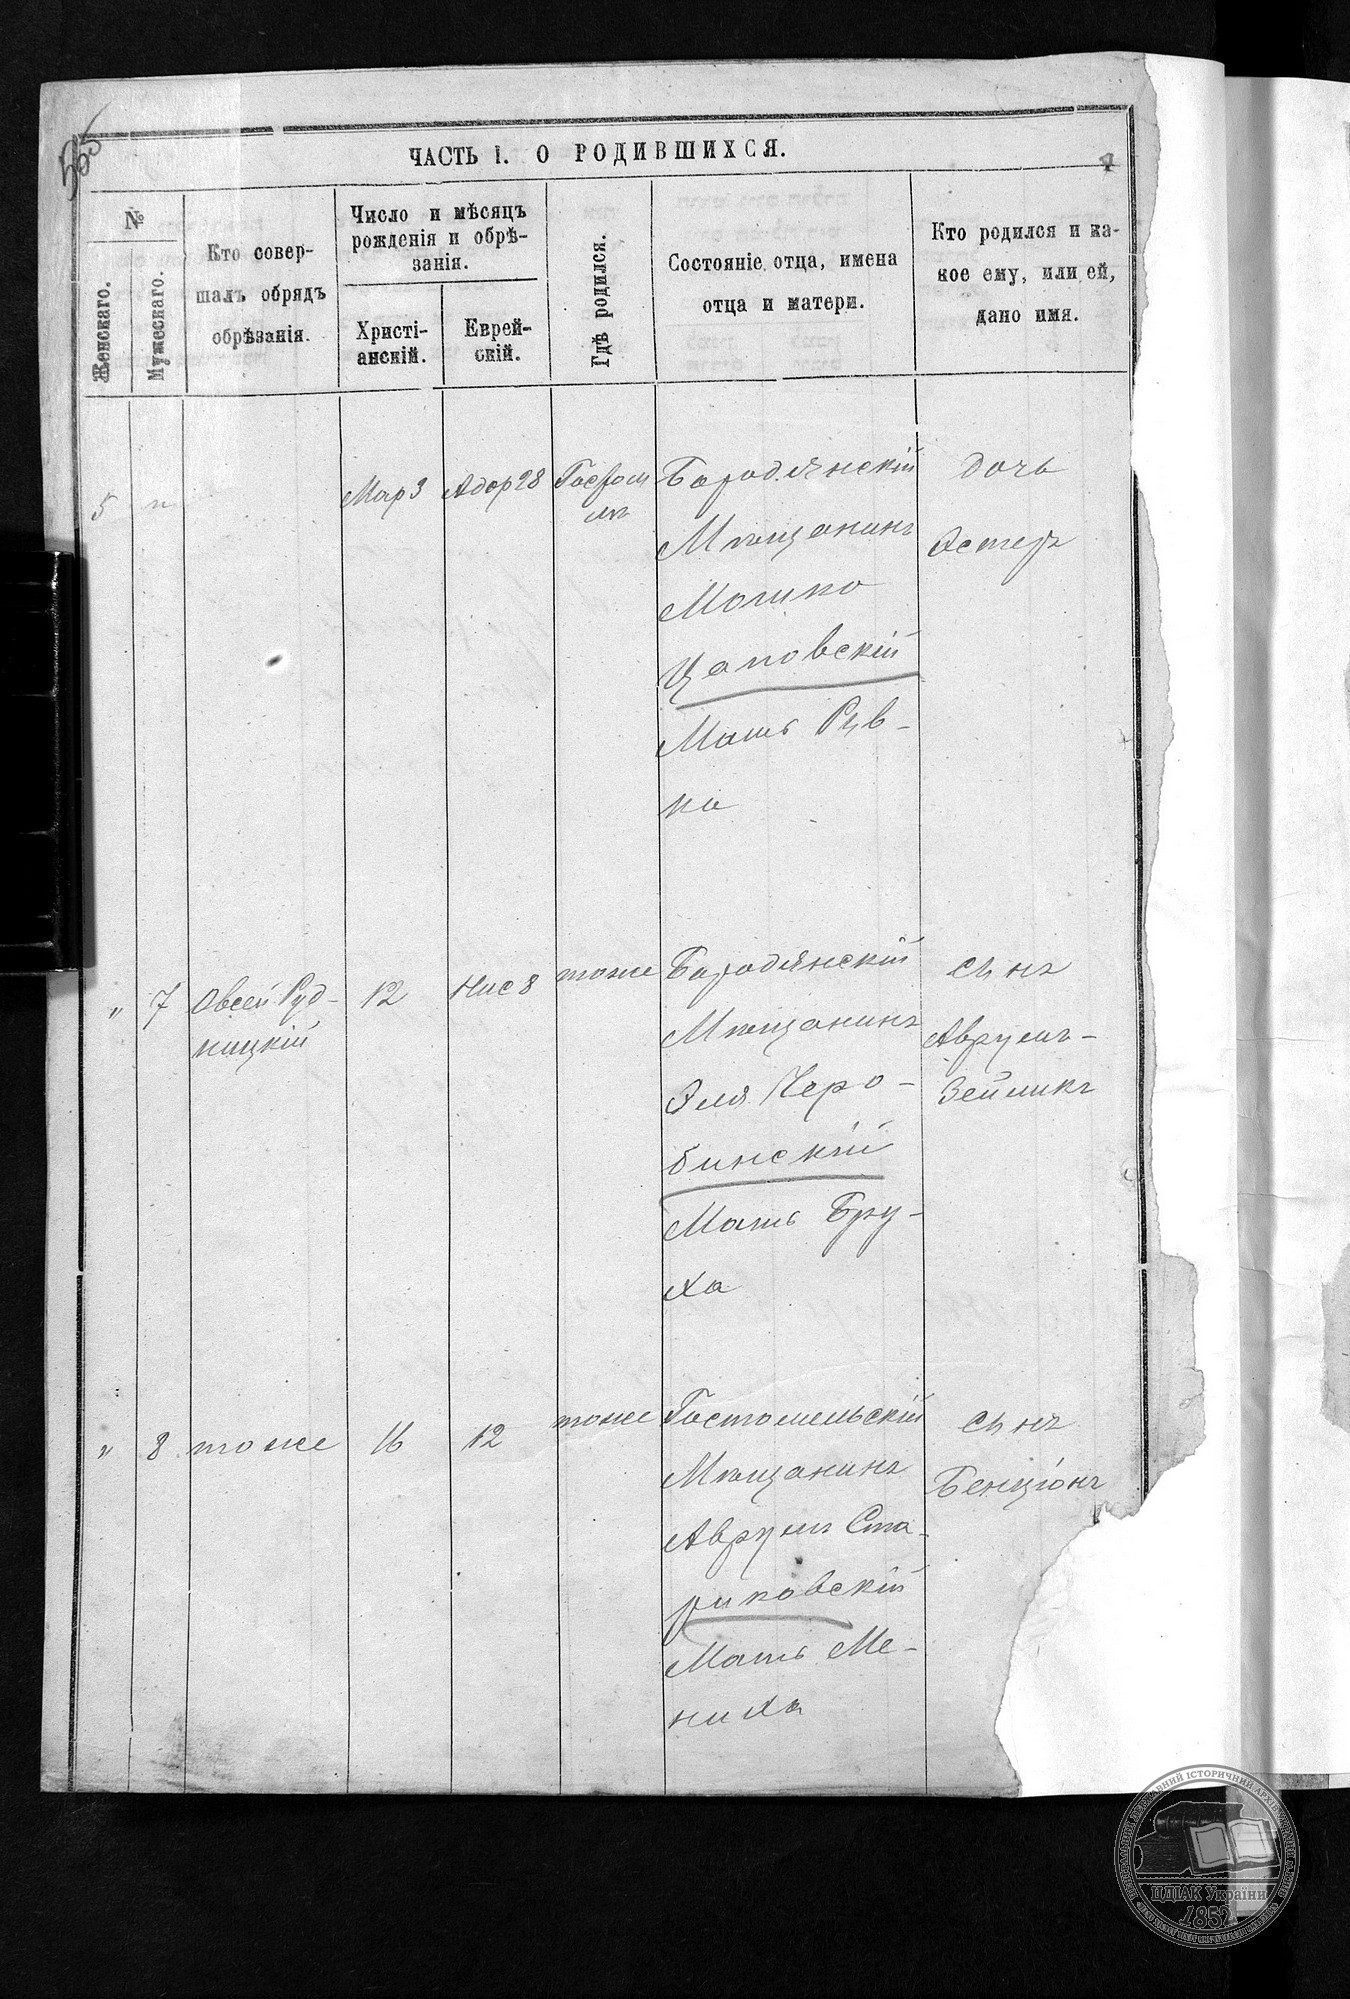 565
ЧАСТЬ I. О РОДИВШИХСЯ.
№
Женскаго.
Мужескаго.
Кто совер-
шалъ обрядъ
обрѣзанія.
Число и мѣсяцъ
рожденія и обрѣ-
занія.
Христі-
анскій.
Еврей-
скій.
Гдѣ родился.
Состояніе отца, имена
отца и матери.
Кто родился и ка-
кое ему, или ей,
дано имя.
5 "
Мар 3
Адар 28
Гостом
ль
Бородянскій
Мѣщанинъ
Мошко
Цаповскій
Мать Рив-
ка
дочь
Эстеръ
" 7
Овсей Руд-
ницкій
12
Нис 8
тоже
Бородянскій
Мѣщанинъ
Эля Черо-
бинскій
Мать Бру-
ха
сынъ
Аврумъ-
Зейликъ
" 8
тоже
16
12
тоже
Гостомельскій
Мѣщанинъ
Аврумъ Ста-
риковскій
Мать Ме-
ниха
сынъ
Бенціонъ
ЦДІАК України
1852